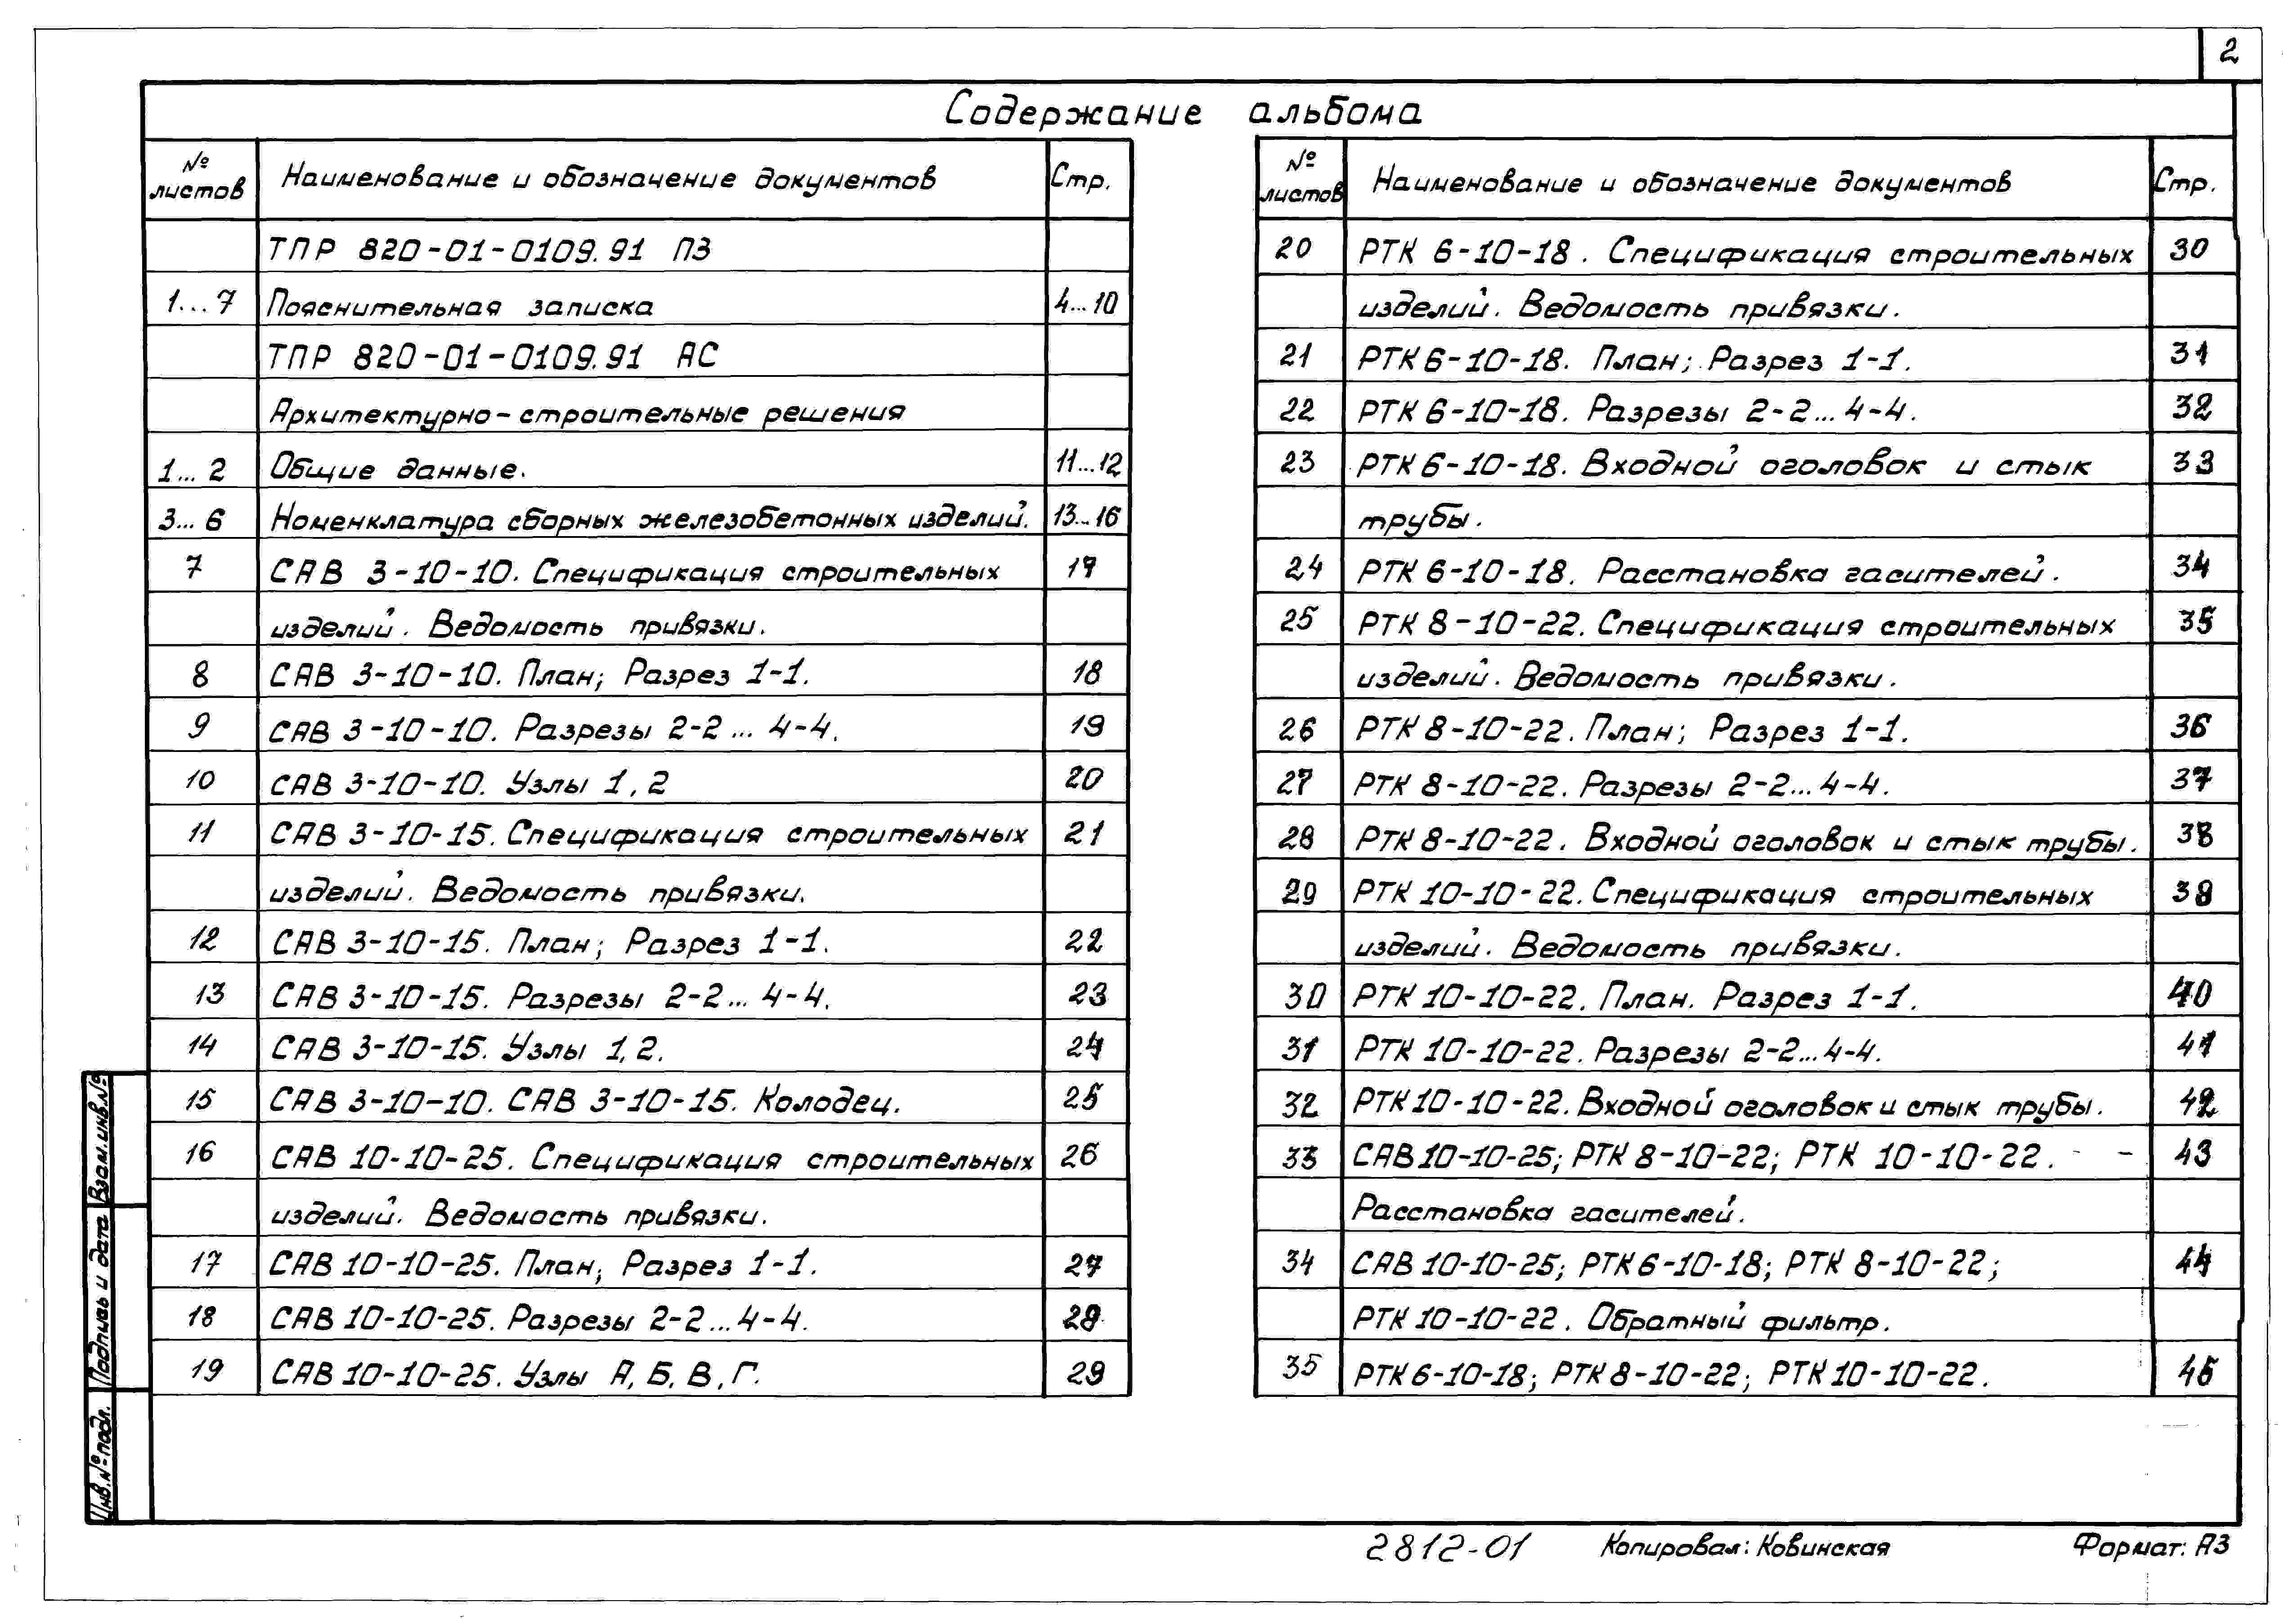 2
Содержание альбома
№ листов Наименование и обозначение документов Стр.
ТПР 820-01-0109.91 ПЗ
1...7 Пояснительная записка 4...10
ТПР 820-01-0109.91 АС
Архитектурно-строительные решения
1...2 Общие данные. 11...12
3...6 Номенклатура сборных железобетонных изделий. 13...16
7 САВ 3-10-10. Спецификация строительных 17
изделий. Ведомость привязки.
8 САВ 3-10-10. План; Разрез 1-1. 18
9 САВ 3-10-10. Разрезы 2-2... 4-4. 19
10 САВ 3-10-10. Узлы 1,2 20
11 САВ 3-10-15. Спецификация строительных 21
изделий. Ведомость привязки.
12 САВ 3-10-15. План; Разрез 1-1. 22
13 САВ 3-10-15. Разрезы 2-2... 4-4. 23
14 САВ 3-10-15. Узлы 1,2. 24
15 САВ 3-10-10. САВ 3-10-15. Колодец. 25
16 САВ 10-10-25. Спецификация строительных 26
изделий. Ведомость привязки.
17 САВ 10-10-25. План; Разрез 1-1. 27
18 САВ 10-10-25. Разрезы 2-2...4-4. 28
19 САВ 10-10-25. Узлы А, Б, В, Г. 29
№ листов Наименование и обозначение документов Стр.
20 РТК 6-10-18. Спецификация строительных 30
изделий. Ведомость привязки.
21 РТК 6-10-18. План; Разрез 1-1. 31
22 РТК 6-10-18. Разрезы 2-2...4-4. 32
23 РТК 6-10-18. Входной оголовок и стык 33
трубы.
24 РТК 6-10-18. Расстановка гасителей. 34
25 РТК 8-10-22. Спецификация строительных 35
изделий. Ведомость привязки.
26 РТК 8-10-22. План; Разрез 1-1. 36
27 РТК 8-10-22. Разрезы 2-2...4-4. 37
28 РТК 8-10-22. Входной оголовок и стык трубы. 38
29 РТК 10-10-22. Спецификация строительных 39
изделий. Ведомость привязки.
30 РТК 10-10-22. План. Разрез 1-1. 40
31 РТК 10-10-22. Разрезы 2-2...4-4. 41
32 РТК 10-10-22. Входной оголовок и стык трубы. 42
33 САВ 10-10-25; РТК 8-10-22; РТК 10-10-22. 43
Расстановка гасителей.
34 САВ 10-10-25; РТК 6-10-18; РТК 8-10-22; 44
РТК 10-10-22. Обратный фильтр.
35 РТК 6-10-18; РТК 8-10-22; РТК 10-10-22. 45
Взам.инв.№
Подпись и дата
Инв.№ подл.
2812-01 Копировал: Ковинская Формат: А3